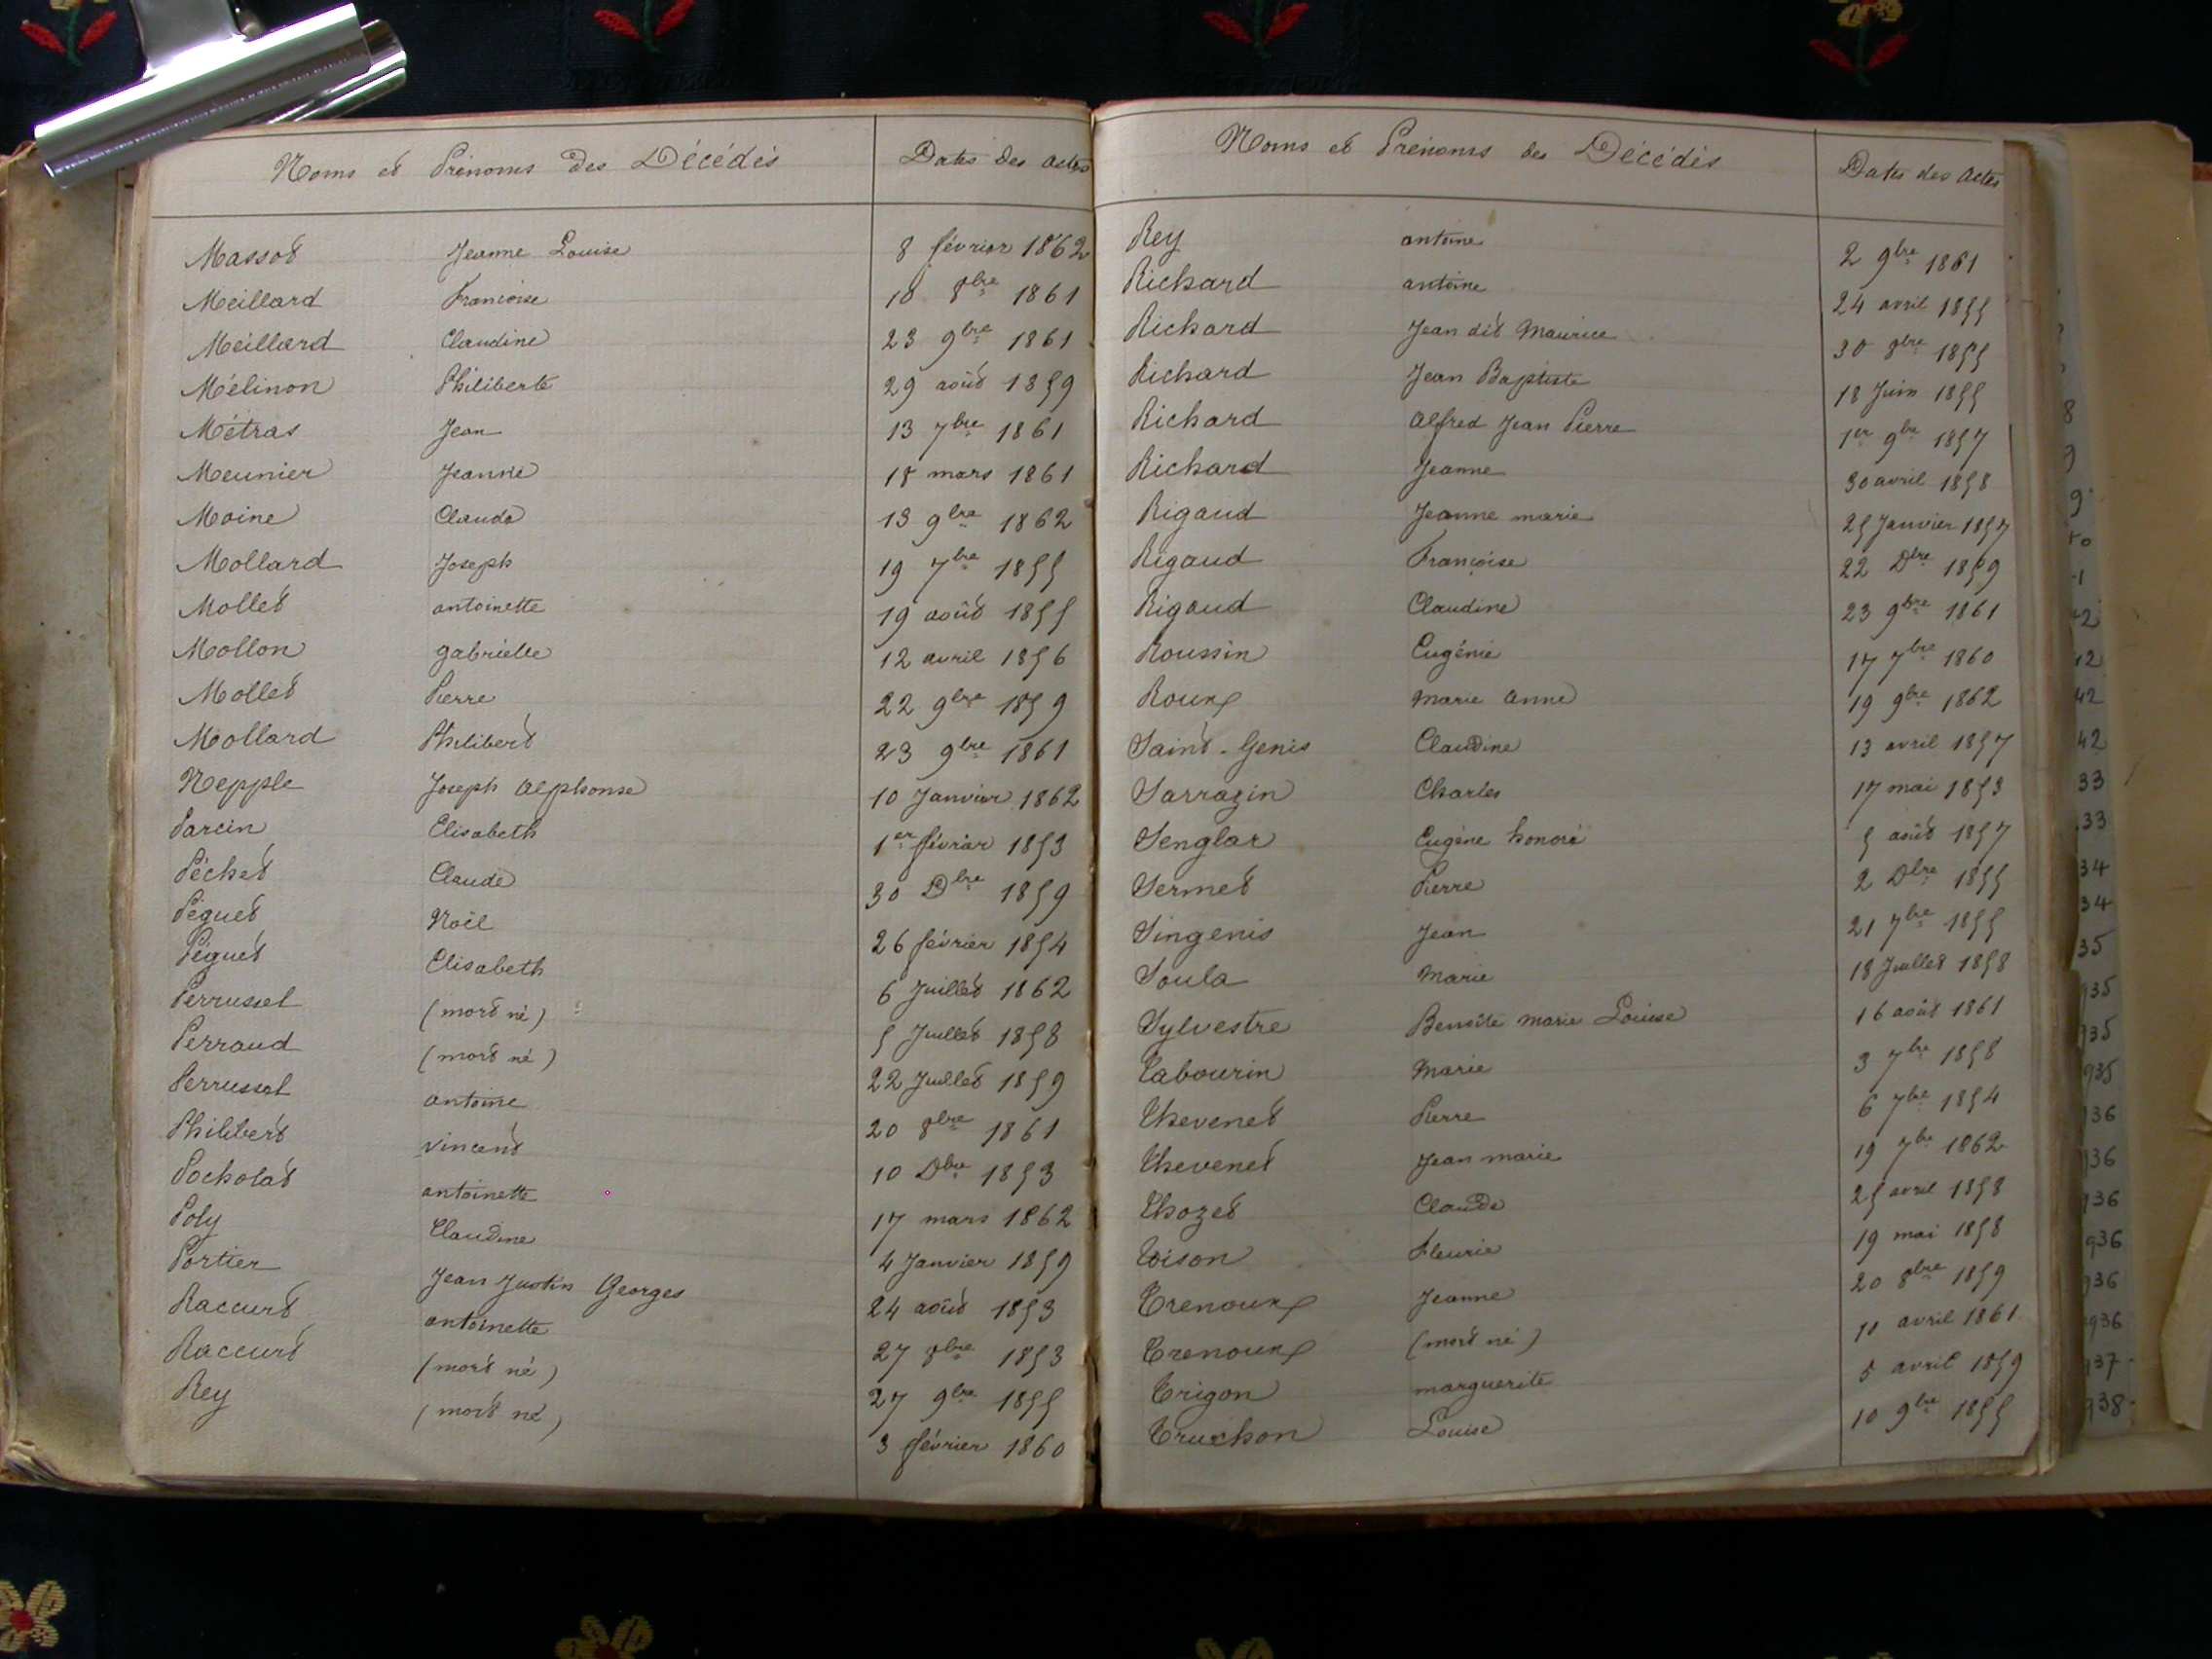 Noms et Prénoms des Décédés Dates des actes
Massot Jeanne Louise 8 février 1862
Meillard Françoise 10 8bre 1861
Meillard Claudine 23 9bre 1861
Mélinon Philiberte 29 août 1859
Métras Jean 13 7bre 1861
Meunier Jeanne 18 mars 1861
Moine Claude 13 9bre 1862
Mollard Joseph 19 7bre 1855
Mollet antoinette 19 août 1855
Mollon gabrielle 12 avril 1856
Mollet Pierre 22 9bre 1859
Mollard Philibert 23 9bre 1861
Nepple Joseph alphonse 10 Janvier 1862
Parcin Elisabeth 1er février 1853
Péchet Claude 30 Dbre 1859
Péguet Noël 26 février 1854
Péguet Elisabeth 6 Juillet 1862
Perrussel (mort né) 5 Juillet 1858
Perraud (mort né) 22 Juillet 1859
Perrussel antoine 20 8bre 1861
Philibert vincent 10 Dbre 1853
Pocholat antoinette 17 mars 1862
Poly Claudine 4 Janvier 1859
Portier Jean Justin Georges 24 août 1853
Raccurt antoinette 27 8bre 1853
Raccurt (mort né) 27 9bre 1855
Rey (mort né) 3 février 1860
Noms et Prénoms des Décédés Dates des actes
Rey antoine 2 9bre 1861
Richard antoine 24 avril 1855
Richard Jean dit Maurice 30 8bre 1855
Richard Jean Baptiste 18 Juin 1855
Richard alfred Jean Pierre 1er 9bre 1857
Richard Jeanne 30 avril 1858
Rigaud Jeanne marie 25 Janvier 1857
Rigaud Françoise 22 Dbre 1859
Rigaud Claudine 23 9bre 1861
Roussin Eugénie 17 7bre 1860
Roux Marie anne 19 9bre 1862
Saint-Genis Claudine 13 avril 1857
Sarrazin Charles 17 mai 1853
Senglar Eugène honoré 5 août 1857
Sermet Pierre 2 Dbre 1855
Singenis Jean 21 7bre 1855
Soula Marie 18 Juillet 1858
Sylvestre Benoîte marie Louise 16 août 1861
Tabourin Marie 3 7bre 1858
Thevenet Pierre 6 7bre 1854
Thevenet Jean marie 19 7bre 1862
Thozet Claude 25 avril 1858
Toison Fleurie 19 mai 1858
Trenoux Jeanne 20 8bre 1859
Trenoux (mort né) 10 avril 1861
Trigon marguerite 5 avril 1859
Truchon Louise 10 9bre 1855